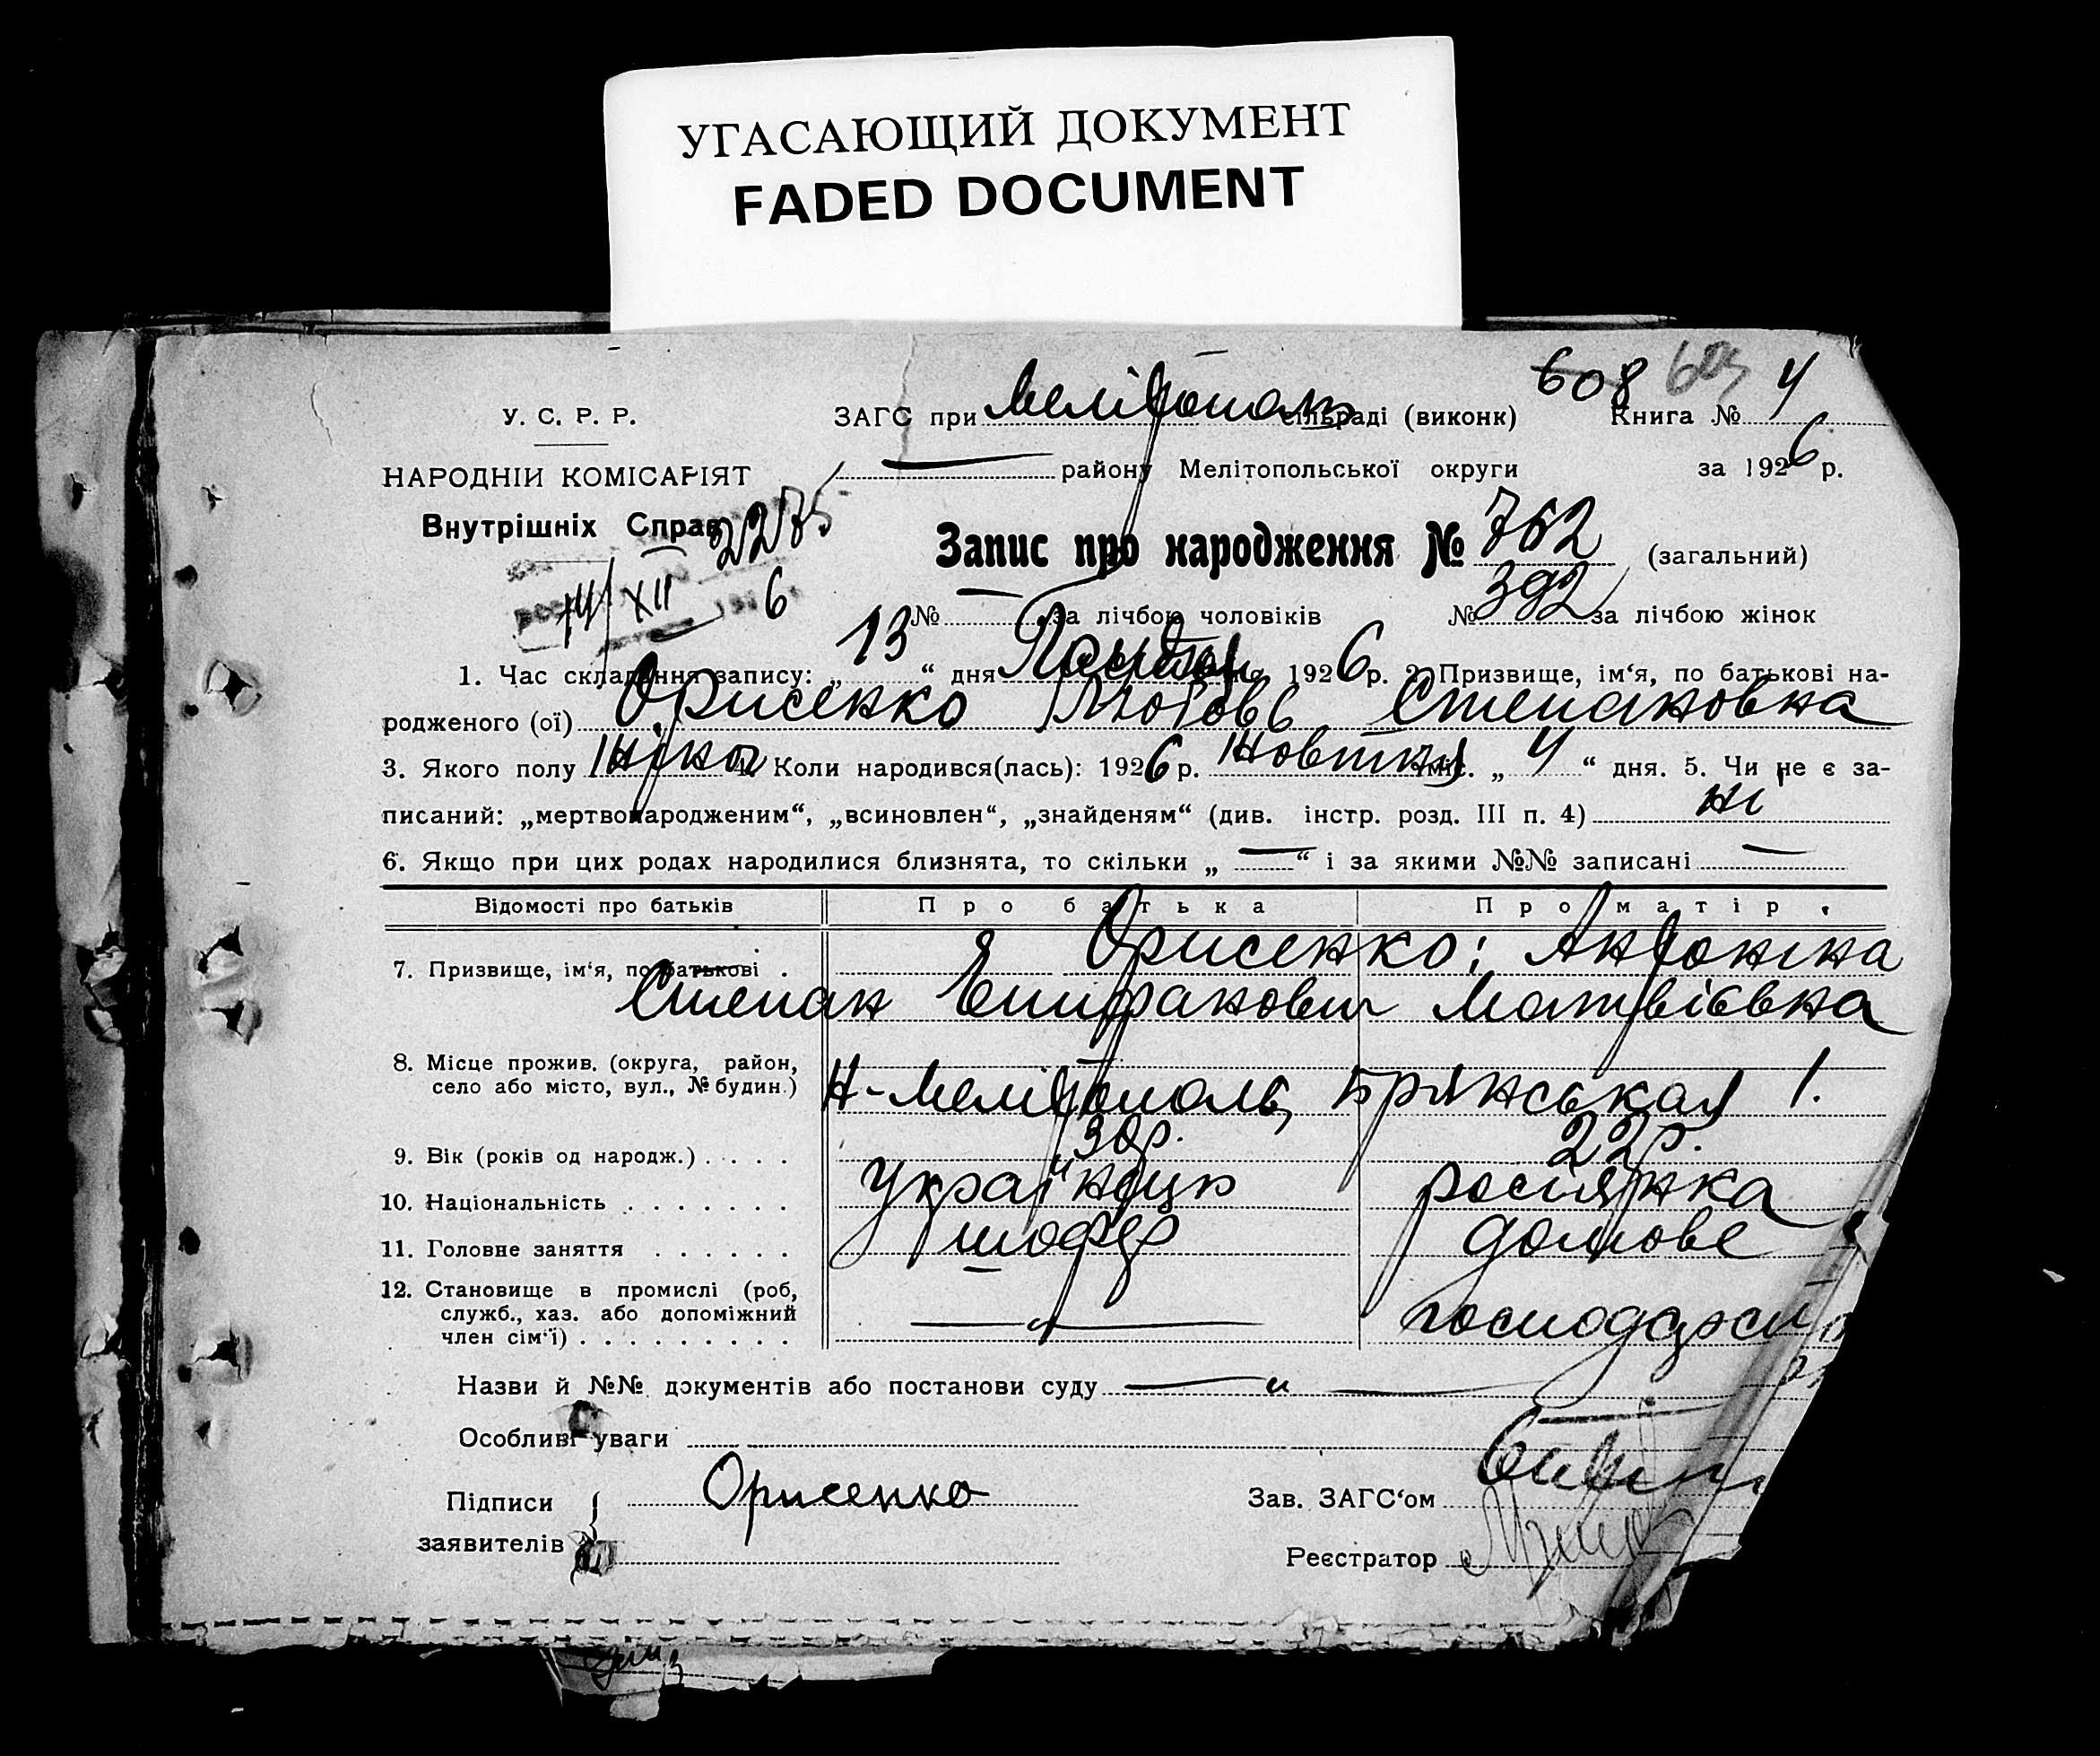 УГАСАЮЩИЙ ДОКУМЕНТ
FADED DOCUMENT
608 4
У. С. Р. Р. ЗАГС при Мелітополь сільраді (виконк) Книга № 4
НАРОДНІЙ КОМІСАРІЯТ — району Мелітопольської округи за 1926 р.
Внутрішніх Справ 2275
Запис про народження № 762 (загальний)
14/XII 6
№ — за лічбою чоловіків № 392 за лічбою жінок
1. Час складання запису: „13“ дня 1926 р. 2. Призвище, ім‘я, по батькові на-
родженого (ої) Орисенко Любовь Степановна
3. Якого полу жіноч 4. Коли народився(лась): 1926 р. жовтня міс. „4“ дня. 5. Чи не є за-
писаний: „мертвонародженим“, „всиновлен“, „знайденям“ (див. інстр. розд. III п. 4) ні
6. Якщо при цих родах народилися близнята, то скільки „—“ і за якими №№ записані —
Відомості про батьків Про батька Про матір
7. Призвище, ім‘я, по батькові Орисенко; Антоніна
Степан Епифанович Матвіївна
8. Місце прожив. (округа, район,
село або місто, вул., № будин.) Н-Мелітополь, Брянськая 1.
9. Вік (років од народж.) 30р. 22р.
10. Національність українць росіянка
11. Головне заняття шофер домове
12. Становище в промислі (роб,
служб., хаз. або допоміжний
член сім‘ї) — " — господарст
Назви й №№ документів або постанови суду — " —
Особливі уваги
Підписи Орисенко Зав. ЗАГС‘ом
заявителів Реєстратор